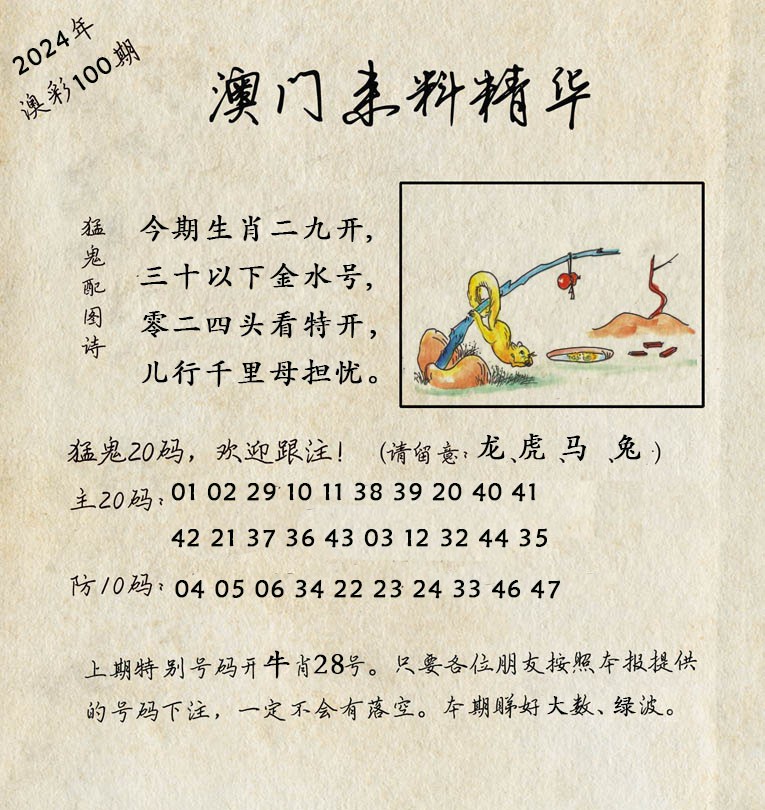 2024年
澳彩100期
澳门来料精华
猛鬼配图诗
今期生肖二九开，
三十以下金水号，
零二四头看特开，
儿行千里母担忧。
猛鬼20码，欢迎跟注！（请留意：龙、虎、马、兔）
主20码：01 02 29 10 11 38 39 20 40 41
42 21 37 36 43 03 12 32 44 35
防10码：04 05 06 34 22 23 24 33 46 47
上期特别号码开牛肖28号。只要各位朋友按照本报提供
的号码下注，一定不会有落空。本期睇好大数、绿波。